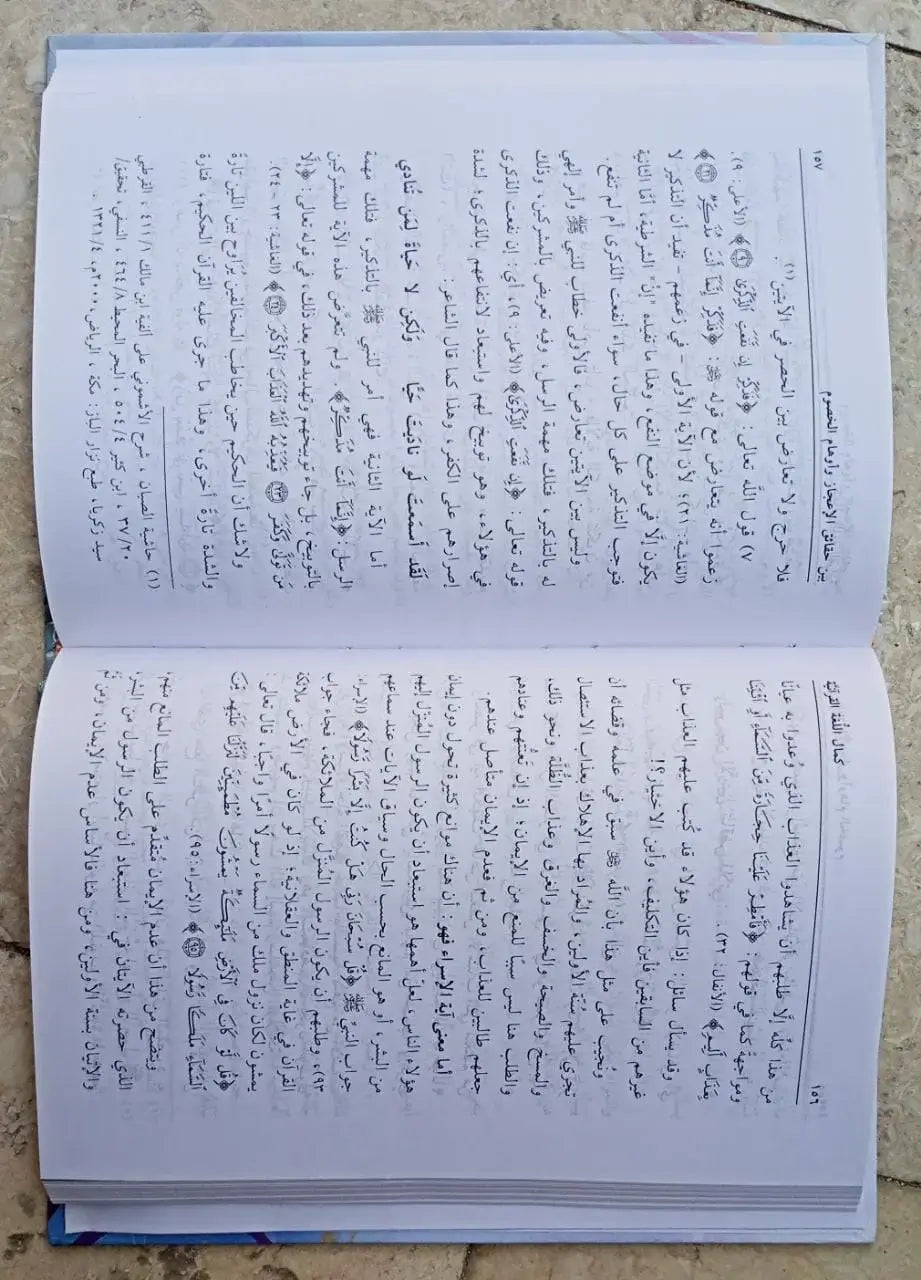 ١٥٦
كمال اللُّغة القرآنيَّة
من هذا كلِّه إلَّا طلبهم أن يشاهدوا العذاب الذي وُعدوا به عيانًا
ومواجهةً كما في قولهم: ﴿فَأَمْطِرْ عَلَيْنَا حِجَارَةً مِّنَ السَّمَاءِ أَوِ ائْتِنَا
بِعَذَابٍ أَلِيمٍ﴾ (الأنفال: ٣٢).
وقد يسأل سائل: إذا كان هؤلاء قد كُتب عليهم العذاب مثل
غيرهم من السابقين فأين التكليف، وأين الاختيار؟!
ونُجيب على مثل هذا بأن الله ﷻ سبق في علمه وقضائه أن
تجري عليهم سُنَّة الأولين، والمُراد بها الإهلاك بعذاب الاستئصال
والمسخ والصيحة والخسف والغرق وعذاب الظُّلَّة ونحو ذلك،
والطلب هنا ليس سببًا للمنع من الإيمان؛ إذ إن تعنُّتهم وعنادهم
جعلهم طالبين للعذاب، ومن ثم فعدم الإيمان متأصل عندهم.
أما معنى آية الإسراء فهو: أن هناك موانع كثيرة تحول دون إيمان
هؤلاء الناس، لعلَّ أهمها هو استبعاد أن يكون الرسول المُنزَّل إليهم
من البشر، أو هو المانع بحسب الحال وسياق الآيات عند سماعهم
جواب النبيِّ ﷺ ﴿قُلْ سُبْحَانَ رَبِّي هَلْ كُنتُ إِلَّا بَشَرًا رَّسُولًا﴾ (الإسراء:
٩٣)، وطلبهم أن يكون الرسول المُنزَّل من الملائكة، فجاء جواب
القرآن في غاية المنطق والعقلانية؛ إذ لو كان في الأرض ملائكة
يمشون لكان نزول ملك من السماء رسولًا أمرًا واجبًا، قال تعالى:
﴿قُل لَّوْ كَانَ فِي الْأَرْضِ مَلَائِكَةٌ يَمْشُونَ مُطْمَئِنِّينَ لَنَزَّلْنَا عَلَيْهِم مِّنَ
السَّمَاءِ مَلَكًا رَّسُولًا ٩٥﴾ (الإسراء: ٩٥).
ويتضح من هذا أن عدم الإيمان مُتقدِّم على الطلب المانع منهم،
الذي حضرته الآيتان في: استبعاد أن يكون الرسول من البشر،
والإتيان بسنة الأولين، ومن هنا فالأساس عدم الإيمان، ومن ثَمَّ
بين حقائق الإعجاز وأوهام الخصوم
١٥٧
فلا حرج ولا تعارض بين الحصر في الآيتين(١).
٧) قول الله تعالى: ﴿فَذَكِّرْ إِن نَّفَعَتِ الذِّكْرَىٰ ٩﴾ (الأعلى: ٩).
زعموا أنه يتعارض مع قوله ﷻ: ﴿فَذَكِّرْ إِنَّمَا أَنتَ مُذَكِّرٌ ٢١﴾
(الغاشية: ٢١)؛ لأن الآية الأولى - في زعمهم - تفيد أن التذكير لا
يكون إلَّا في موضع النفع، وهذا ما تفيده إنْ الشرطية، أمَّا الثانية
فتوجب التذكير على كل حال، سواء أنفعت الذكرى أم لم تنفع.
وليس بين الآيتين تعارض، فالأولى خطاب للنبي ﷺ وأمر إلهي
له بالتذكير، فتلك مهمة الرسل، وفيه تعريض بالمشركين، وذلك
قوله تعالى: ﴿إِن نَّفَعَتِ الذِّكْرَىٰ﴾ (الأعلى: ٩)، أي: إن نفعت الذكرى
في هؤلاء، وهو توبيخ لهم واستبعاد لانتفاعهم بالذكرى؛ لشدة
إصرارهم على الكفر، وهذا كما قال الشاعر:
لَقَد أَسمَعتَ لَو نادَيتَ حَيًّا وَلَكِن لا حَياةَ لِمَن تُنادي
أما الآية الثانية فهي أمر للنبي ﷺ بالتذكير، فتلك مهمة
الرسل ﴿إِنَّمَا أَنتَ مُذَكِّرٌ﴾. ولم تتعرَّض هذه الآية للمشركين
بالتوبيخ، بل جاء توبيخهم وتهديدهم بعد ذلك، في قوله تعالى: ﴿إِلَّا
مَن تَوَلَّىٰ وَكَفَرَ ٢٣ فَيُعَذِّبُهُ اللَّهُ الْعَذَابَ الْأَكْبَرَ ٢٤﴾ (الغاشية: ٢٣ - ٢٤).
ولا شك أن الحكيم حين يخاطب المخالفين يُراوح بين اللين تارة
والشدة تارةً أخرى، وهذا ما جرى عليه القرآن الحكيم، فتارة
(١) حاشية الصبان، شرح الأشموني على ألفية ابن مالك ٤١١/١، القرطبي
٣٧/٢٠، ابن كثير ٥٠٤/٤، البحر المحيط ٤٦٤/٨، النسفي، تحقيق/
سيد زكريا، طبع نزار الباز: مكة، الرياض، ٢٠٠٠م، ١٣٢١/٤.